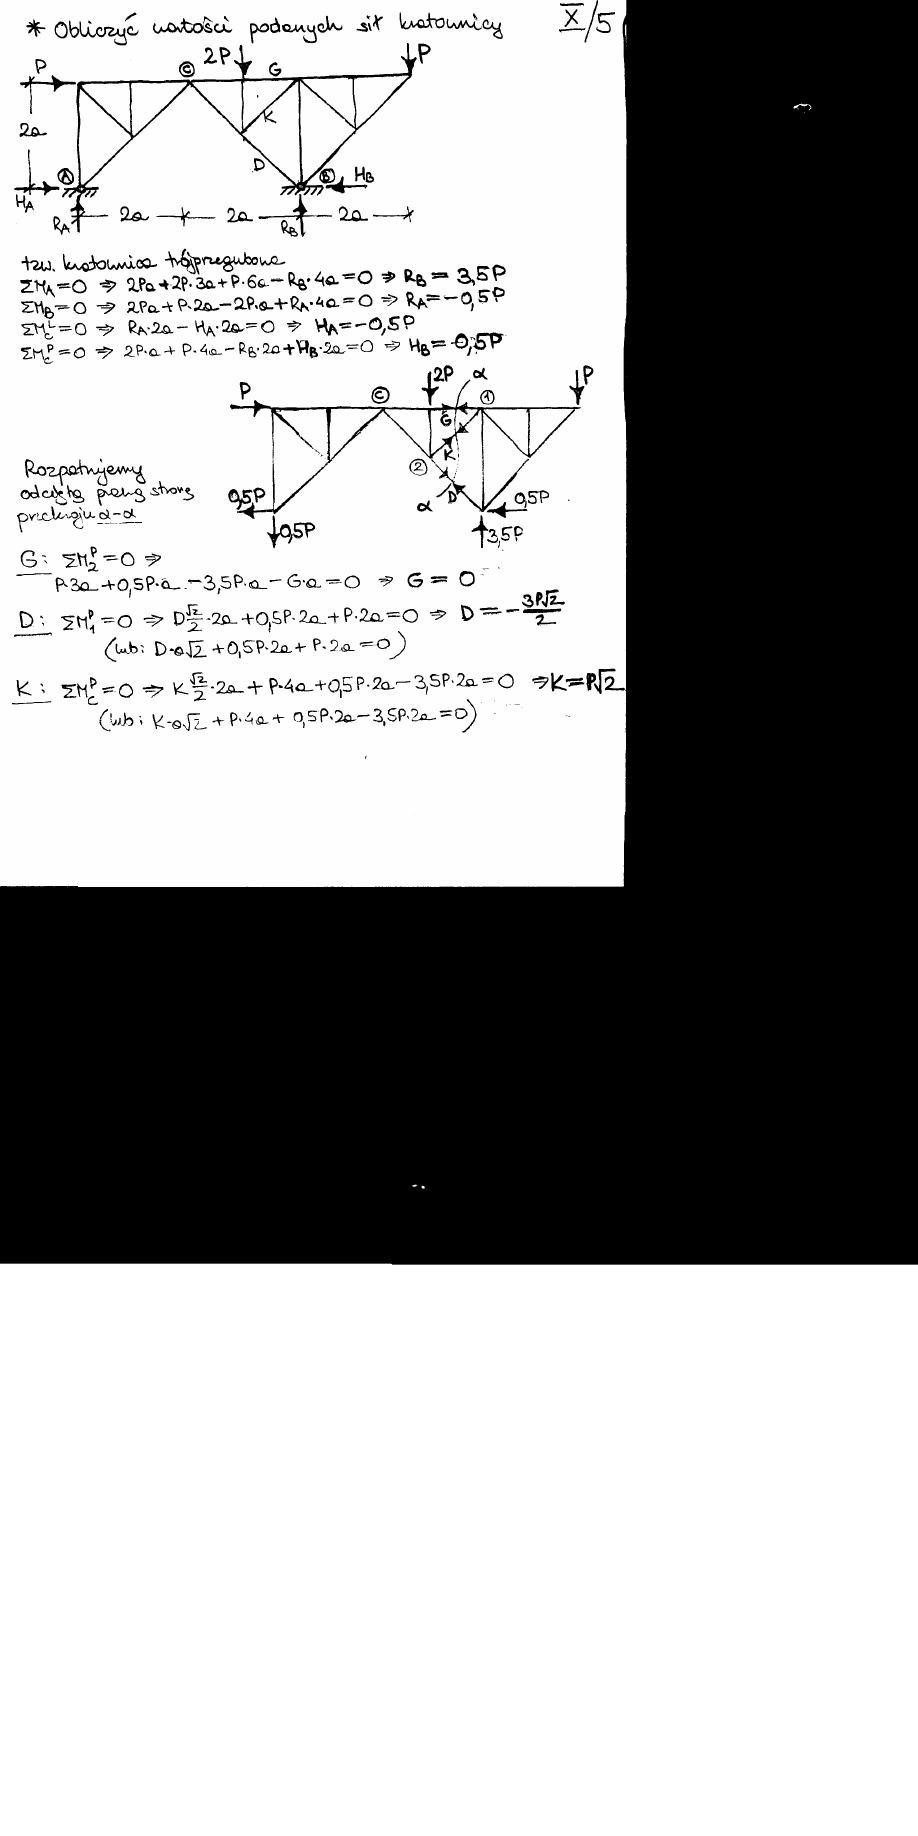 * Obliczyć wartości podanych sił kratownicy X/5
P 2P G P
C K
2a D
A B H_B
H_A R_A 2a 2a R_B 2a
tzw. kratownica trójprzegubowa
ΣM_A=0 ⇒ 2Pa+2P·3a+P·6a−R_B·4a=0 ⇒ R_B=3,5P
ΣM_B=0 ⇒ 2Pa+P·2a−2P·a+R_A·4a=0 ⇒ R_A=−0,5P
ΣM_C^L=0 ⇒ R_A·2a−H_A·2a=0 ⇒ H_A=−0,5P
ΣM_C^P=0 ⇒ 2P·a+P·4a−R_B·2a+H_B·2a=0 ⇒ H_B=0,5P
2P α P
P C 1
G
K
2
α D
0,5P 0,5P
0,5P 3,5P
Rozpatrujemy
odciętą prawą stronę
przekroju α-α
G: ΣM_2^P=0 ⇒
P·3a+0,5P·a−3,5P·a−G·a=0 ⇒ G=0
D: ΣM_1^P=0 ⇒ D√2/2·2a+0,5P·2a+P·2a=0 ⇒ D=−3P√2/2
(lub: D·a√2+0,5P·2a+P·2a=0)
K: ΣM_C^P=0 ⇒ K√2/2·2a+P·4a+0,5P·2a−3,5P·2a=0 ⇒K=P√2
(lub: K·a√2+P·4a+0,5P·2a−3,5P·2a=0)